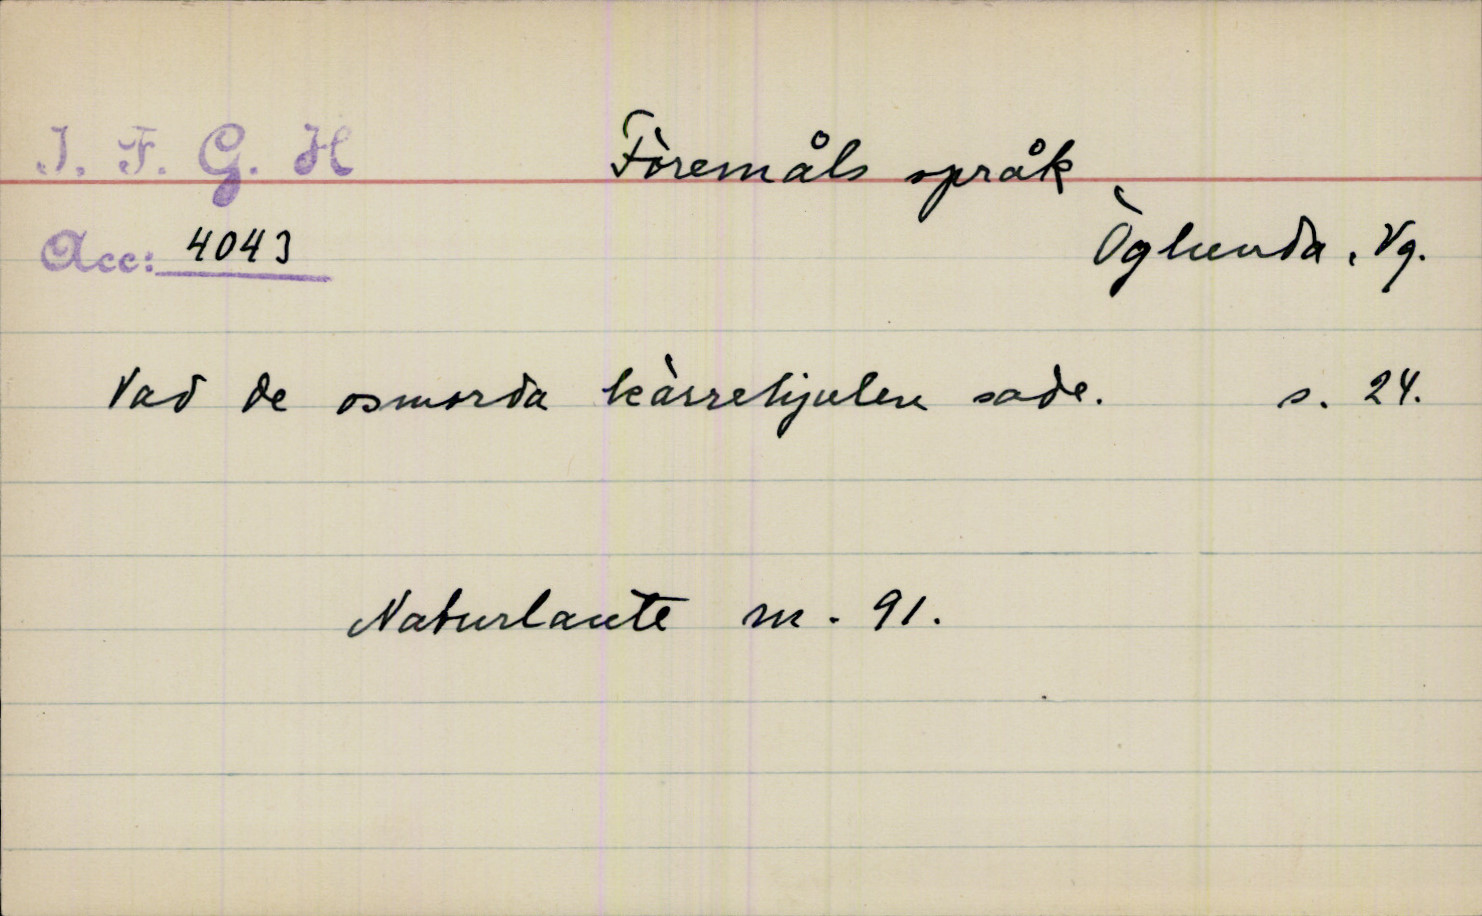 I. F. G. H
Föremåls språk
Acc: 4043
Öglunda, Vg.
Vad de osmorda kärrehjulen sade. s. 24.
Naturlaute m. 91.